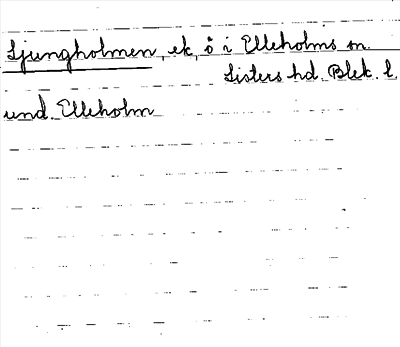 Ljungholmen, ek, ö i Elleholms sn.
Listers hd. Blek. l.
und. Elleholm